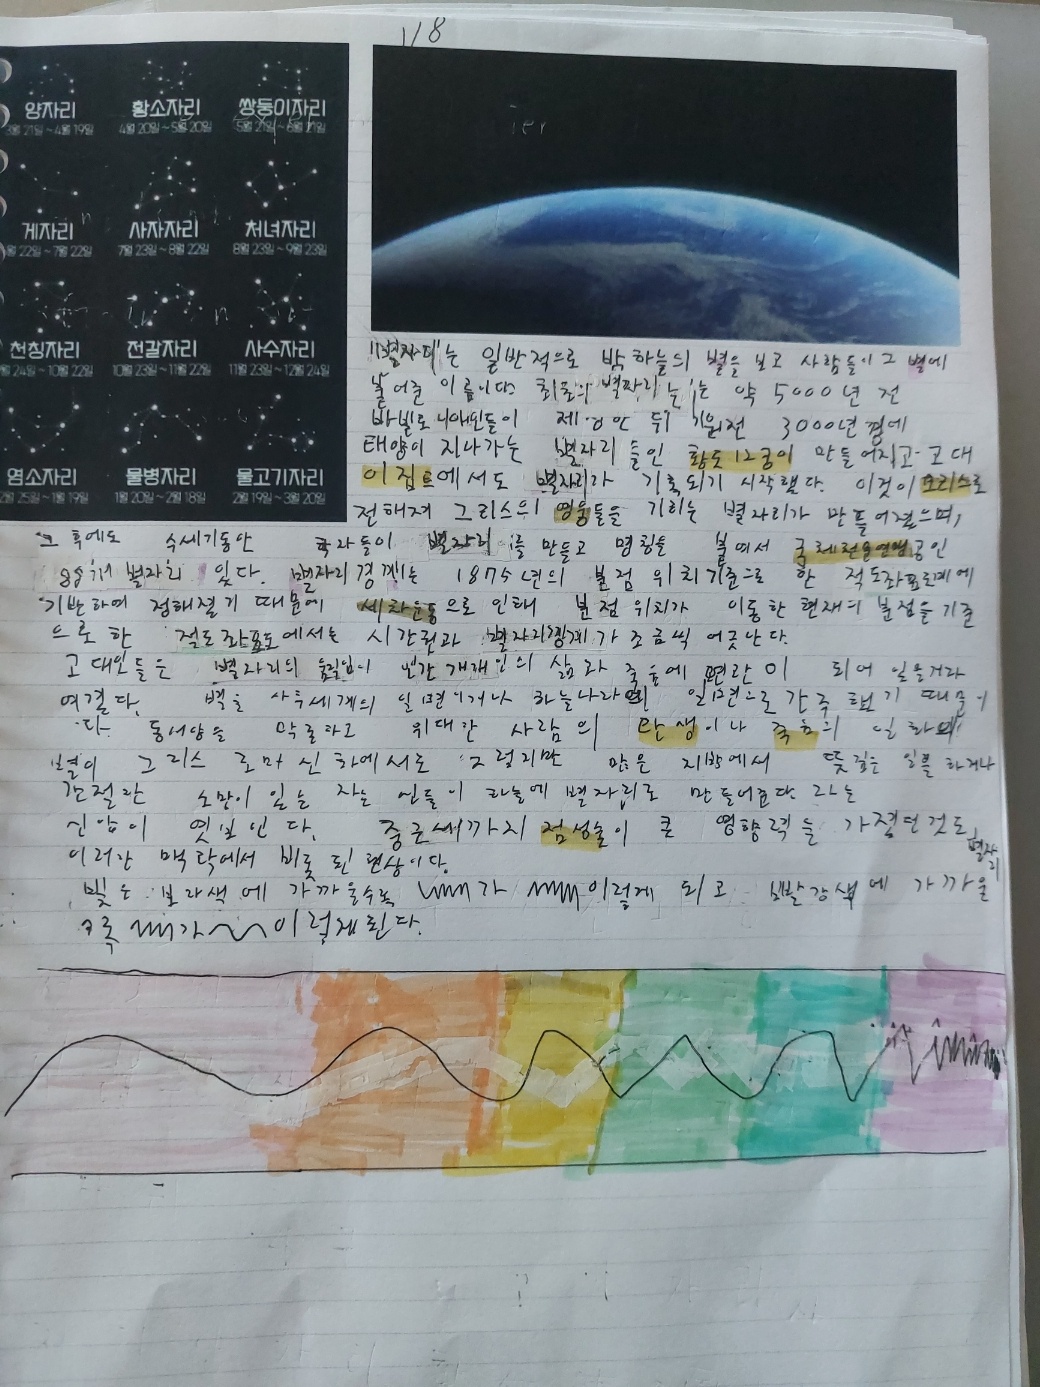 1/8
양자리 황소자리 쌍둥이자리
3월 21일 ~ 4월 19일 4월 20일 ~ 5월 20일 5월 21일 ~ 6월 21일
게자리 사자자리 처녀자리
월 22일 ~ 7월 22일 7월 23일 ~ 8월 22일 8월 23일 ~ 9월 23일
천칭자리 전갈자리 사수자리
월 24일 ~ 10월 22일 10월 23일 ~ 11월 22일 11월 23일 ~ 12월 24일
염소자리 물병자리 물고기자리
2월 25일 ~ 1월 19일 1월 20일 ~ 2월 18일 2월 19일 ~ 3월 20일
"별자리"는 일반적으로 밤하늘의 별을 보고 사람들이 그 별에
붙여준 이름이다. 최초의 별자리는 약 5000년 전
바빌로니아인들이 제 뒤 기원전 3000년경에
태양이 지나가는 별자리들인 황도 12궁이 만들어지고 고대
이집트에서도 별자리가 기록되기 시작했다. 이것이 그리스로
전해져 그리스의 영웅들을 기리는 별자리가 만들어졌으며,
그 후에도 수세기동안 학자들이 별자리를 만들고 명칭을 붙여서 국제천문연맹공인
88개 별자리 있다. 별자리경계는 1875년의 분점 위치기준으로 한 적도좌표단계에
기반하여 정해졌기 때문에 세차운동으로 인해 분점 위치가 이동한 현재의 분점을 기준
으로 한 적도좌표도에서는 시간권과 별자리경계가 조금씩 어긋난다.
고대인들은 별자리의 움직임이 인간 개개인의 삶과 죽음에 연관이 되어 있을거라
여겼다. 별을 사후세계의 일면이거나 하늘나라의 일면으로 간주했기 때문이
다. 동서양을 막론하고 위대한 사람의 탄생이나 죽음의
별이 그리스 로마 신화에서도 그렇지만 많은 지방에서 뜻깊은 일을 하거나
간절한 소망이 있는 자는 신들이 하늘에 별자리로 만들어준다 라는
신앙이 엿보인다. 중근세까지 점성술이 큰 영향력을 가졌던 것도
이러한 맥락에서 비롯된 현상이다. 별자리
빛은 보라색에 가까울수록 가 이렇게 되고 빨강색에 가까울
수록 가 이렇게된다.